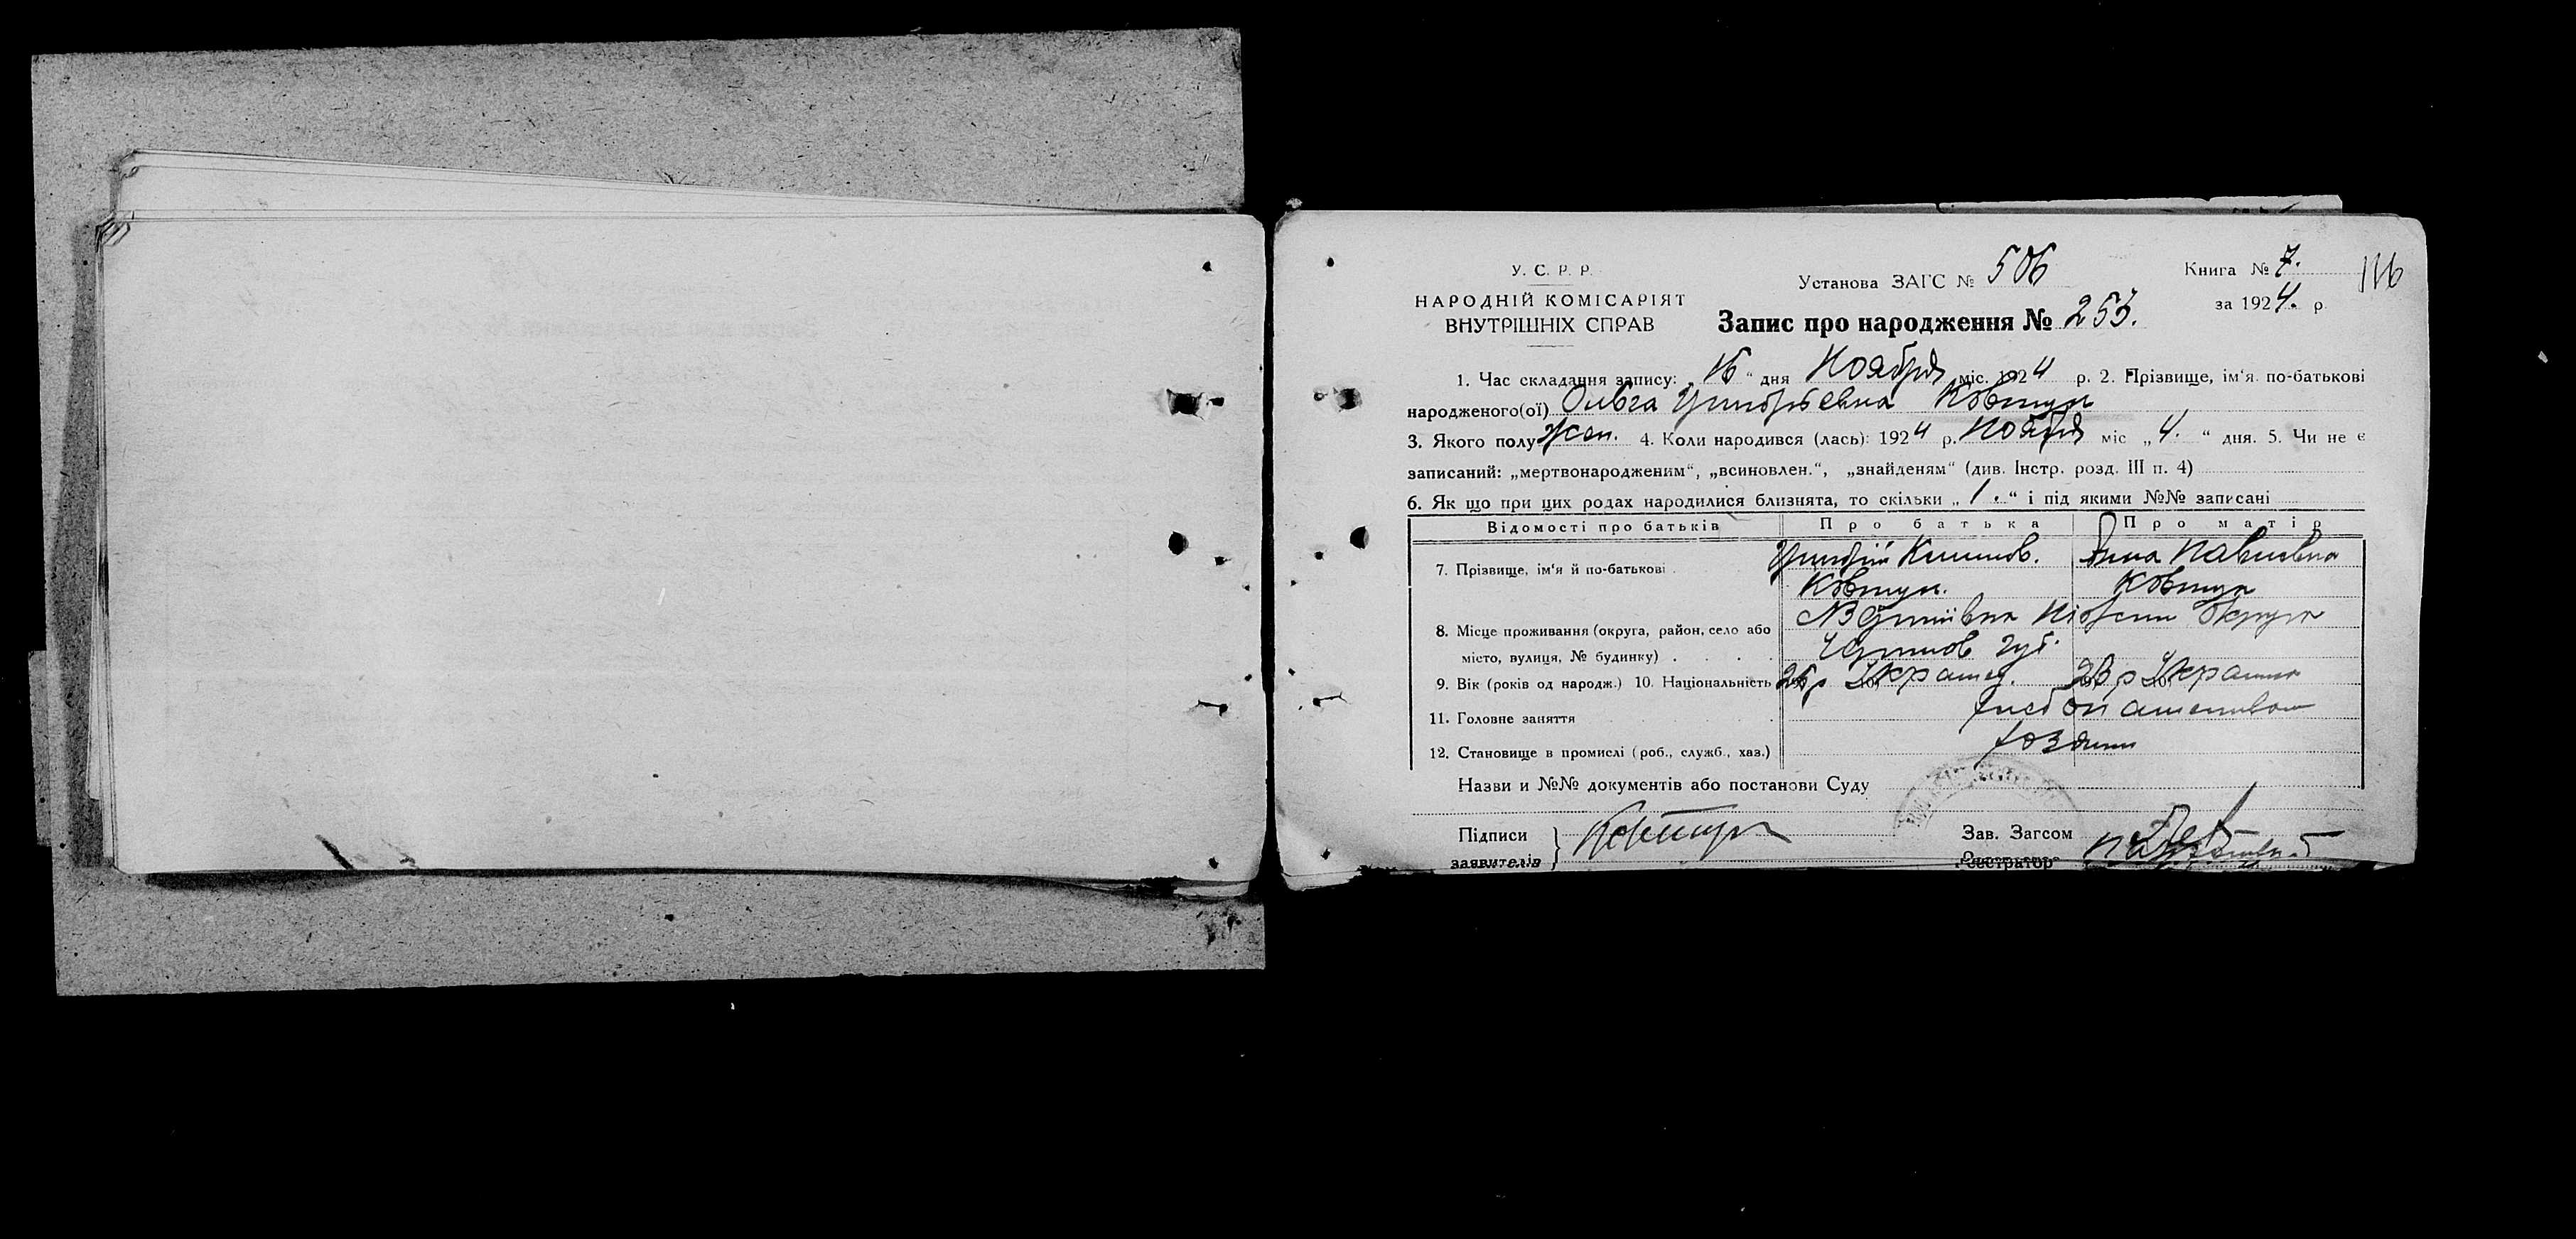 У. С. Р. Р.
НАРОДНІЙ КОМІСАРІЯТ
ВНУТРІШНІХ СПРАВ
Установа ЗАГС № 506
Запис про народження № 253.
Книга № 7.
за 1924. р.
116
1. Час складання запису: „16“ дня Ноября міс. 1924 р. 2. Прізвище, ім'я по-батькові
народженого(ої) Ольга Григорьевна Ковтун
3. Якого полу Жен. 4. Коли народився (лась): 1924 р. Ноября міс „4.“ дня. 5. Чи не є
записаний: „мертвонародженим“, „всиновлен.“, „знайденям“ (див. Інстр. розд. III п. 4)
6. Як що при цих родах народилися близнята, то скільки „1.“ і під якими №№ записані
Відомості про батьків Про батька Про матір
7. Прізвище, ім'я й по-батькові Григорій Климов. Анна Павловна
Ковтун. Ковтун
8. Місце проживання (округа, район, село або округа
місто, вулиця, № будинку) Чернигов губ.
9. Вік (років од народж.) 10. Національність 26 р 10) Украинец. 23 р 10) Украинка
11. Головне заняття
12. Становище в промислі (роб., служб., хаз.) хозяин
Назви и №№ документів або постанови Суду
Підписи
заявителів
Ковтун
Зав. Загсом
Реєстратор